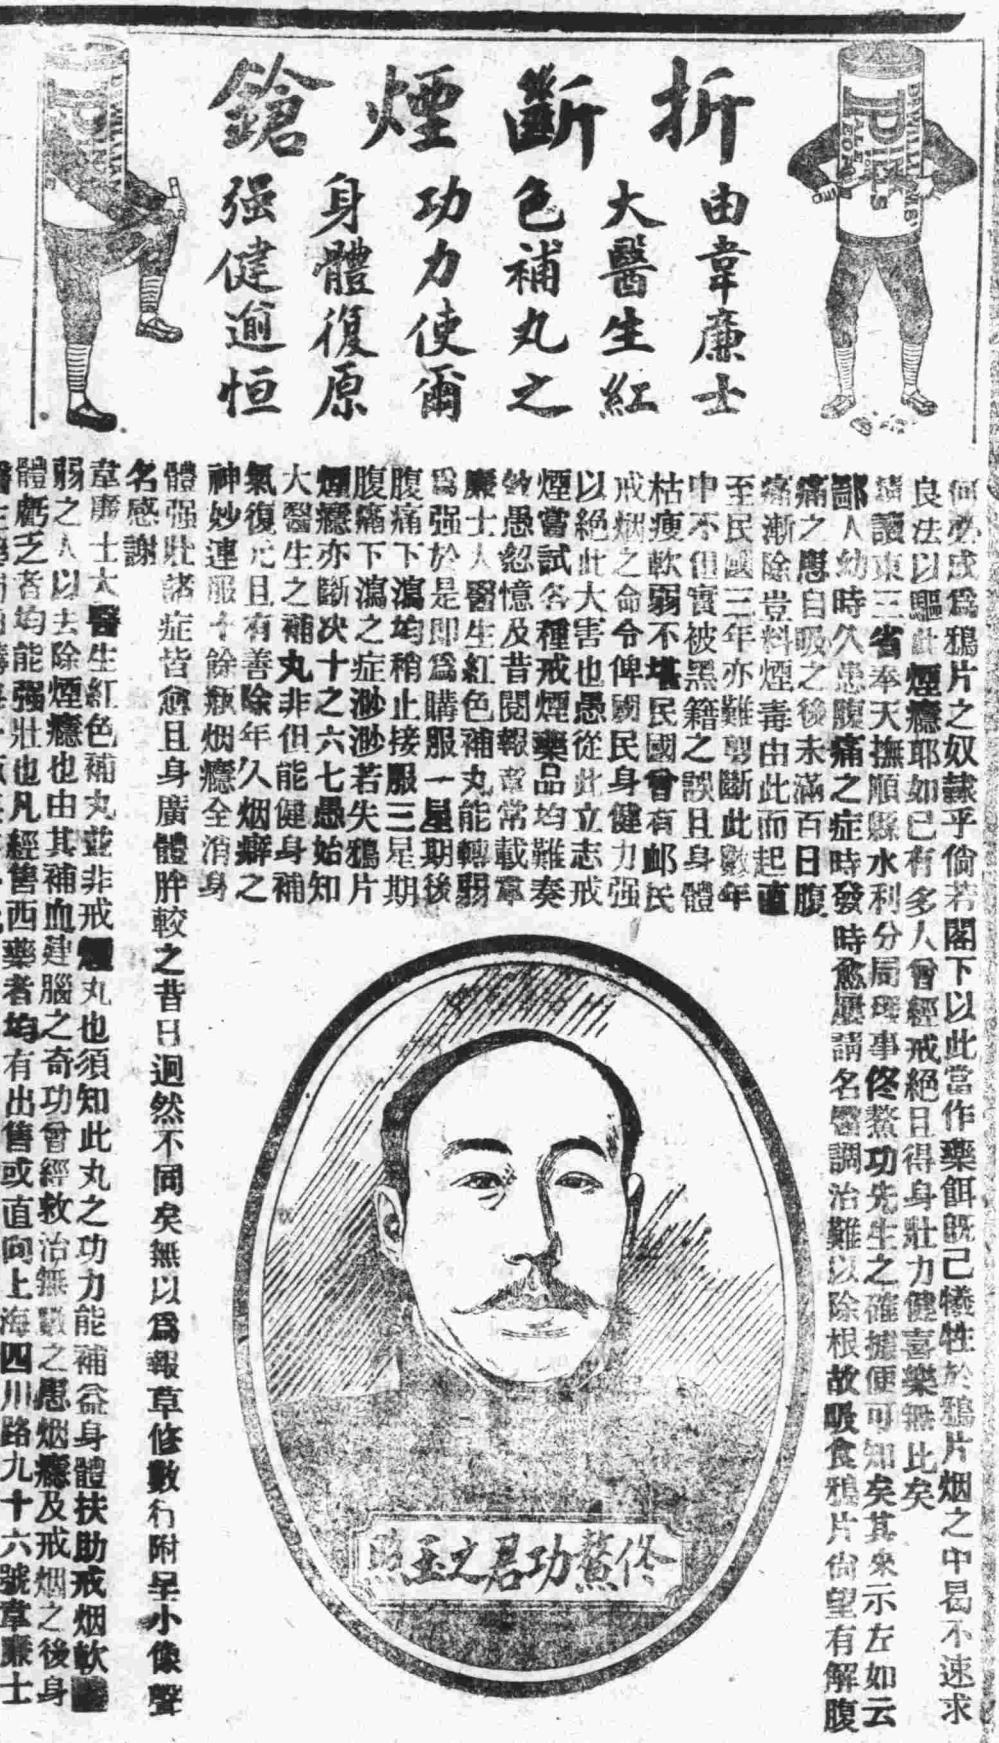 折斷煙鎗
由韋廉士
大醫生紅
色補丸之
功力使爾
身體復原
强健逾恒
DR WILLIAMS
PINK
PILLS
何必成爲鴉片之奴隸乎倘若閣下以此當作藥餌既已犧牲於鴉片烟之中曷不速求
良法以驅此煙癮耶如已有多人曾經戒絕且得身壯力健喜樂無比矣
請讀東三省奉天撫順縣水利分局理事佟鰲功先生之確據便可知矣其來示左如云
鄙人幼時久患腹痛之症時發時愈屢請名醫調治難以除根故吸食鴉片尙望有解腹
痛之患自吸之後未滿百日腹
痛漸除豈料煙毒由此而起直
至民國三年亦難剪斷此數年
中不但實被黑籍之誤且身體
枯瘦軟弱不堪民國曾有䘏民
戒烟之命令俾國民身健力强
以絕此大害也愚從此立志戒
煙嘗試各種戒煙藥品均難奏
效愚忽憶及昔閱報章常載韋
廉士大醫生紅色補丸能轉弱
爲强於是即爲購服一星期後
腹痛下瀉均稍止接服三星期
腹痛下瀉之症渺渺若失鴉片
煙癮亦斷决十之六七愚始知
大醫生之補丸非但能健身補
氣復元且有善除年久烟癖之
神妙連服十餘瓶烟癮全消身
體强壯諸症皆愈且身廣體胖較之昔日迥然不同矣無以爲報草修數行附呈小像聲
名感謝
韋廉士大醫生紅色補丸並非戒煙丸也須知此丸之功力能補益身體扶助戒烟軟
弱之人以去除煙癮也由其補血建腦之奇功曾經救治無數之患烟癮及戒烟之後身
體虧乏者均能强壯也凡經售西藥者均有出售或直向上海四川路九十六號韋廉士
佟鰲功君之玉照